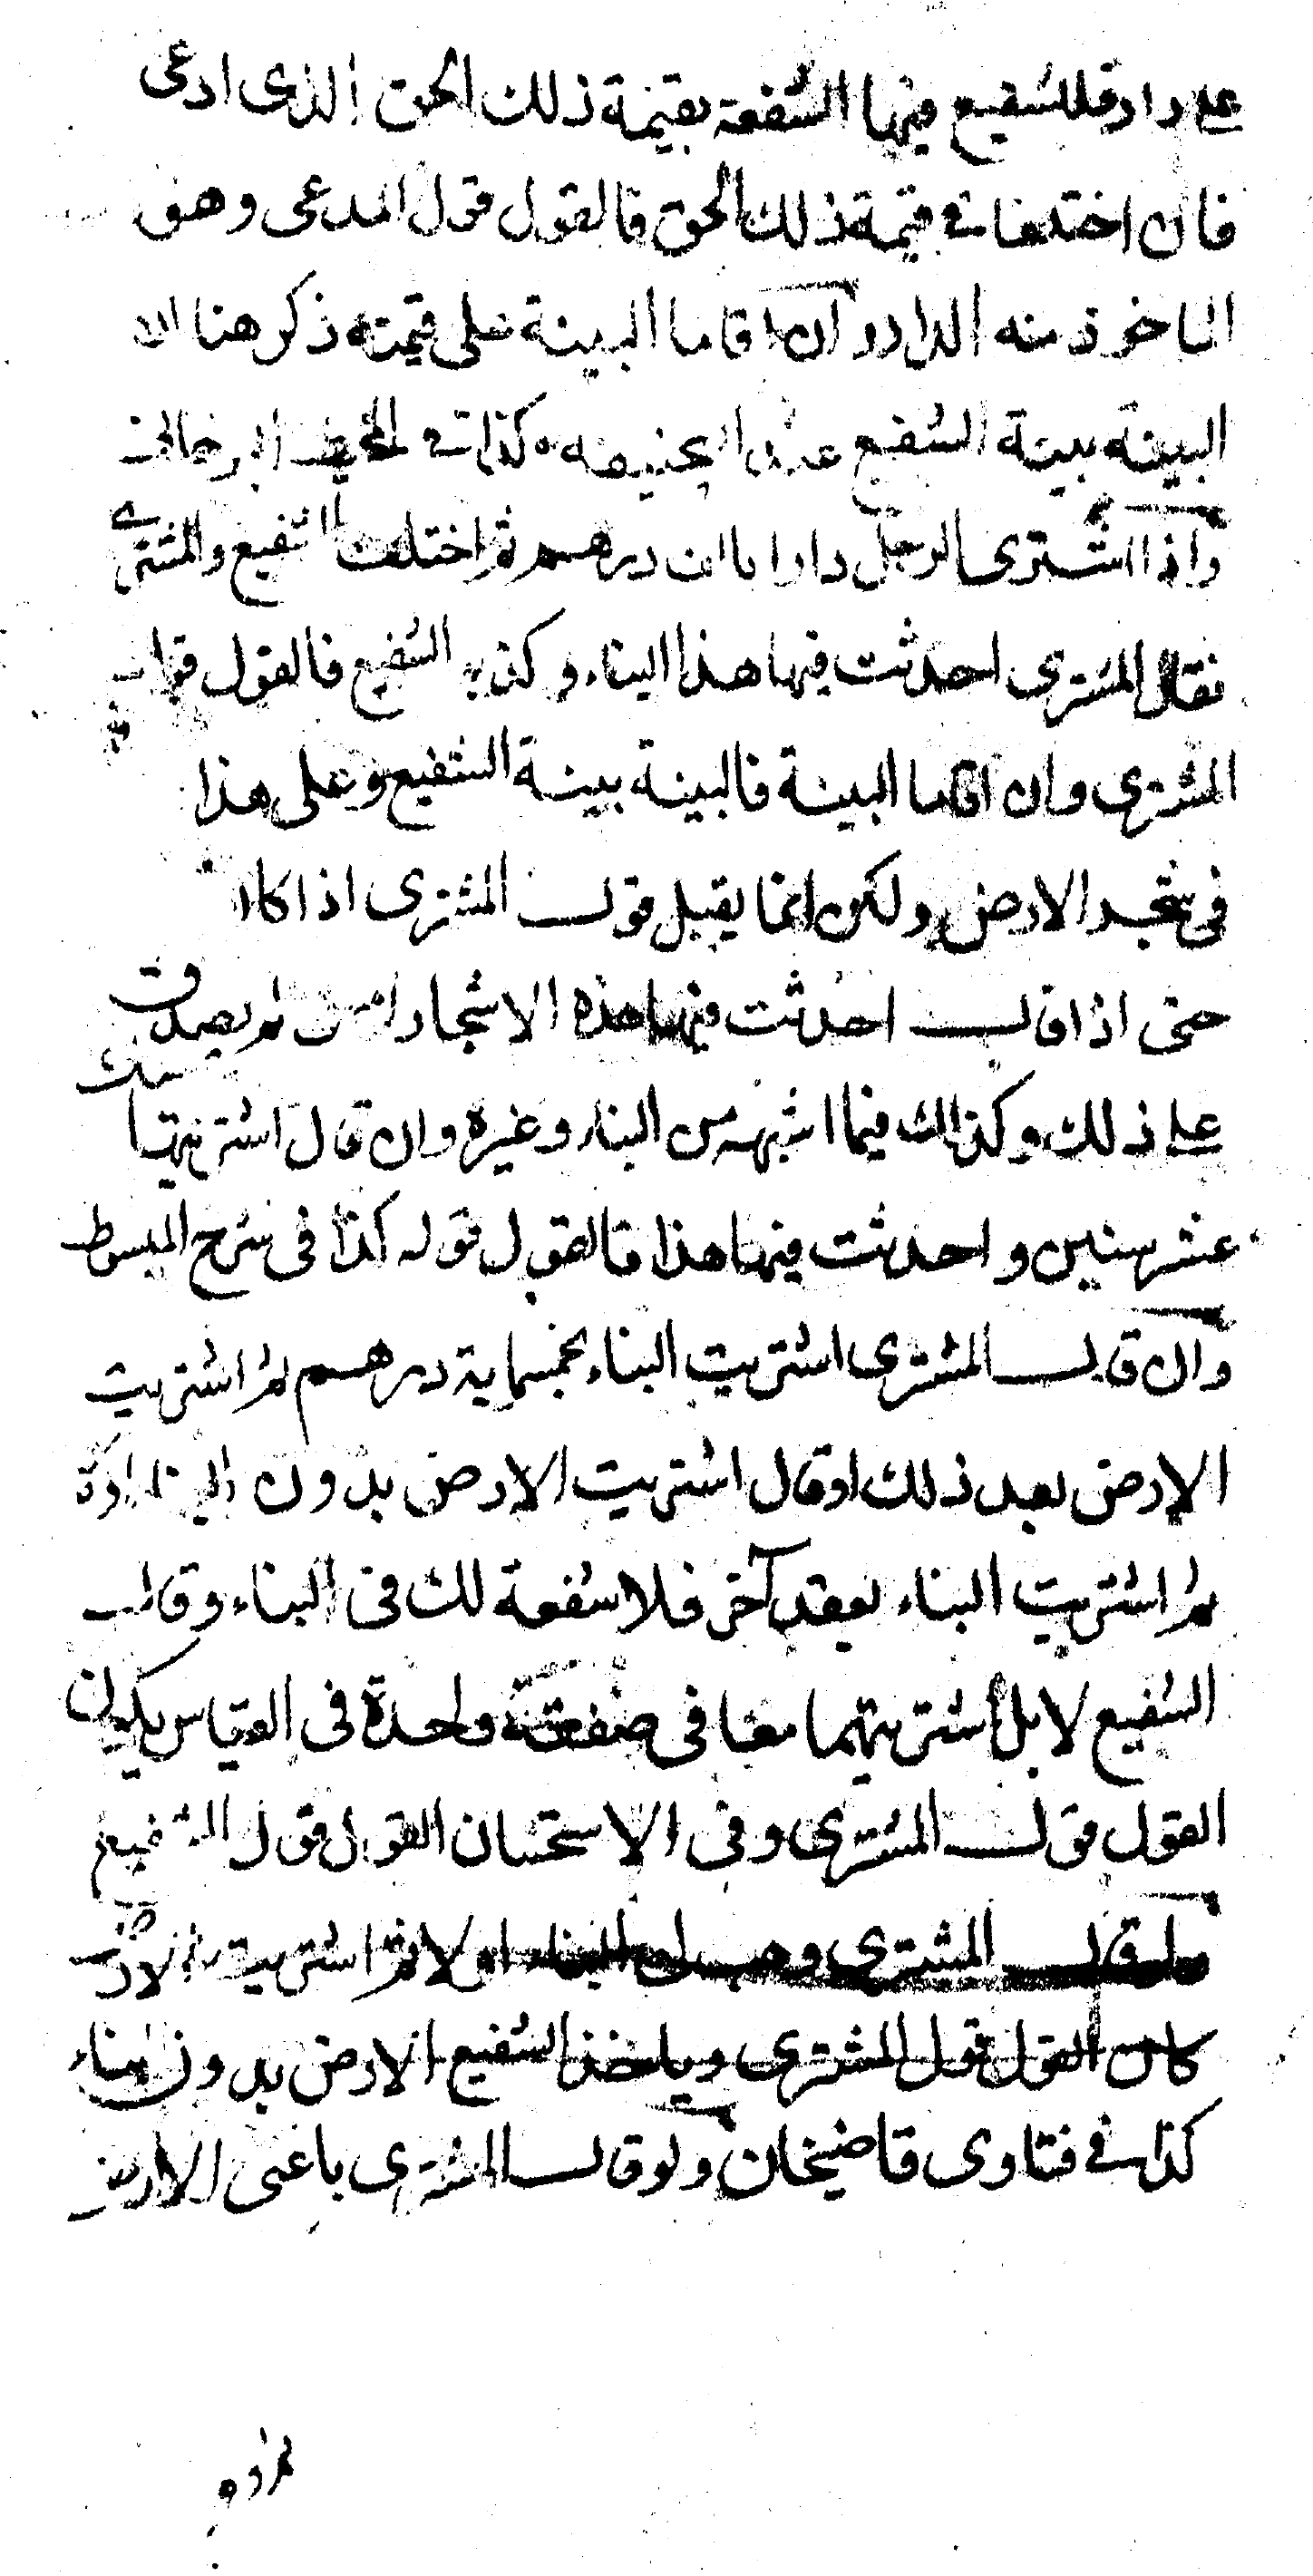 على دار فللشفيع فيها الشفعة بقيمة ذلك الحق الذى ادعى
فان اختلفا فى قيمة ذلك الحق فالقول قول المدعى وهو
الماخوذ منه الدار وان اقاما البينة على قيمته ذكر هنا ان
البينة بينة الشفيع عند ابى حنيفه كذا فى المحيط
واذا اشترى الرجل دارا بالف درهم ثم اختلف الشفيع والمشترى
فقال المشترى احدثت فيها هذا البناء وكذبه الشفيع فالقول قول
المشترى وان اقاما البينة فالبينة بينة الشفيع وعلى هذا
فى شجر الارض ولكن انما يقبل قول المشترى اذا كان
حتى اذا قال احدثت فيها هذه الاشجار امس لم يصدق
على ذلك وكذلك فيما اشبهه من البناء وغيره وان قال اشتريتها منذ
عشر سنين واحدثت فيها هذا فالقول قوله كذا فى شرح المبسوط
وان قال المشترى اشتريت البناء بخمسماية درهم ثم اشتريت
الارض بعد ذلك او قال اشتريت الارض بدون البناء اولا
ثم اشتريت البناء بعقد آخر فلا شفعة لك فى البناء وقال
الشفيع لا بل اشتريتهما معا فى صفقة واحدة فى القياس يكون
القول قول المشترى وفى الاستحسان القول قول الشفيع
ولو قال المشترى وهب لى البناء اولا ثم اشتريت الارض
كان القول قول المشترى وياخذ الشفيع الارض بدون البناء
كذا فى فتاوى قاضيخان ولو قال المشترى باعنى الارض